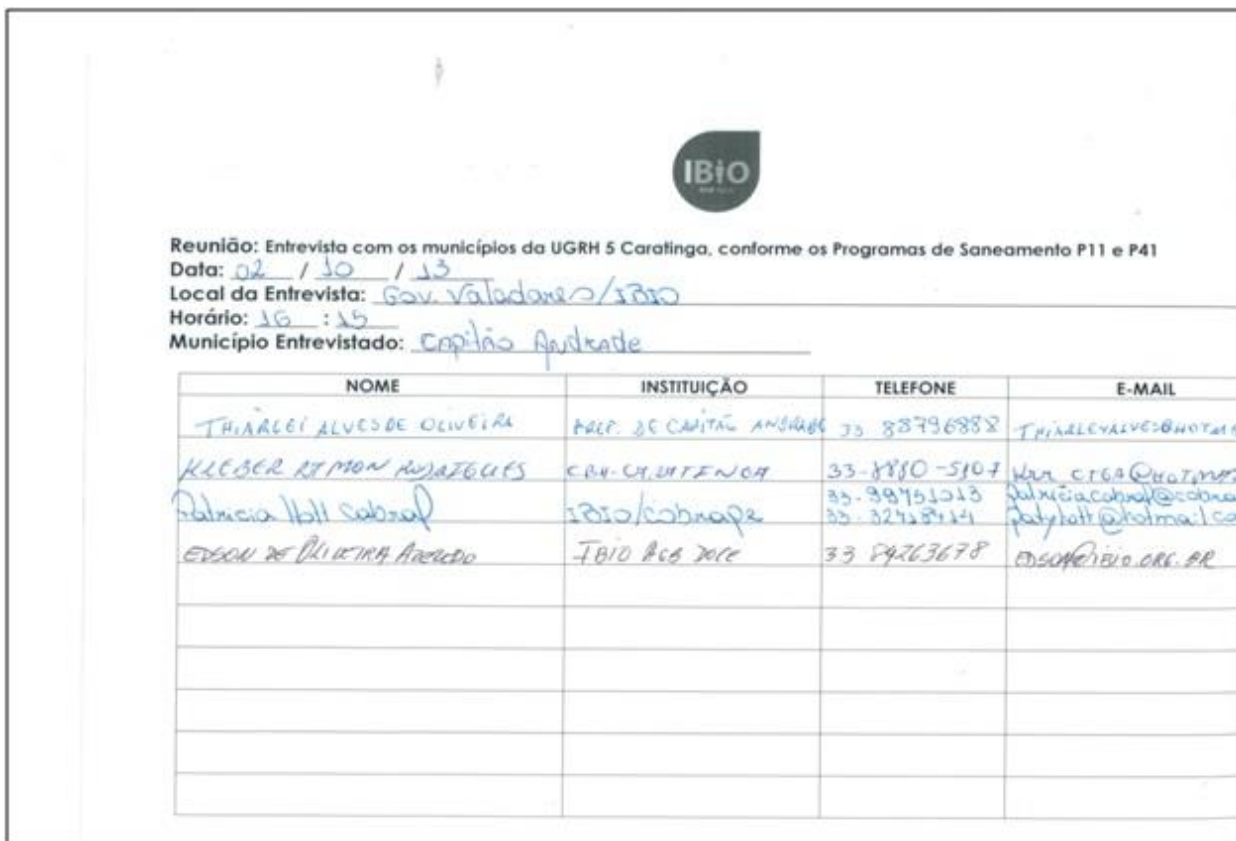 IBiO
Reunião: Entrevista com os municípios da UGRH 5 Caratinga, conforme os Programas de Saneamento P11 e P41
Data: 02 / 10 / 13
Local da Entrevista: Gov. Valadares/IBIO
Horário: 16 : 15
Município Entrevistado: Capitão Andrade
NOME INSTITUIÇÃO TELEFONE E-MAIL
THIARLEI ALVES DE OLIVEIRA PREF. DE CAPITÃO ANDRADE 33 88796888
KLEBER RAMON RODRIGUES CBH-CARATINGA 33-8880-5107
Patricia Hott Cabral IBIO/Cobrape 33-99751013 patriciacabral@cobra
33-32718414 patyhott@hotmail.co
EDSON DE OLIVEIRA AZEVEDO IBIO AGB DOCE 33 89263678 EDSON@IBIO.ORG.BR